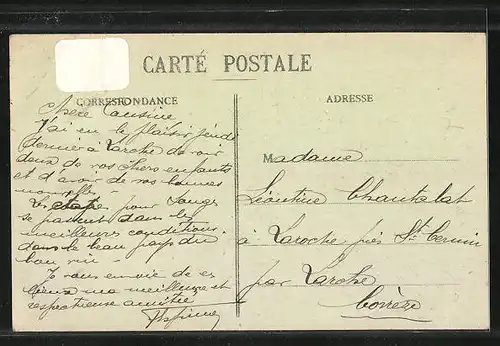 CARTÉ POSTALE
CORRESPONDANCE
ADRESSE
Chère Cousine
J'ai eu le plaisir jeudi
dernier à Laroche de voir
deux de vos chers enfants
et d'avoir de vos bonnes
nouvelles
Les étapes pour
se passent dans les
meilleures conditions.
dans le beau pays du
bon vin -
Je vous envoie de ces
lieux ma meilleure et
respectueuse amitié
Madame
Léontine Chantalat
à Laroche près St
par Larche
Corrèze